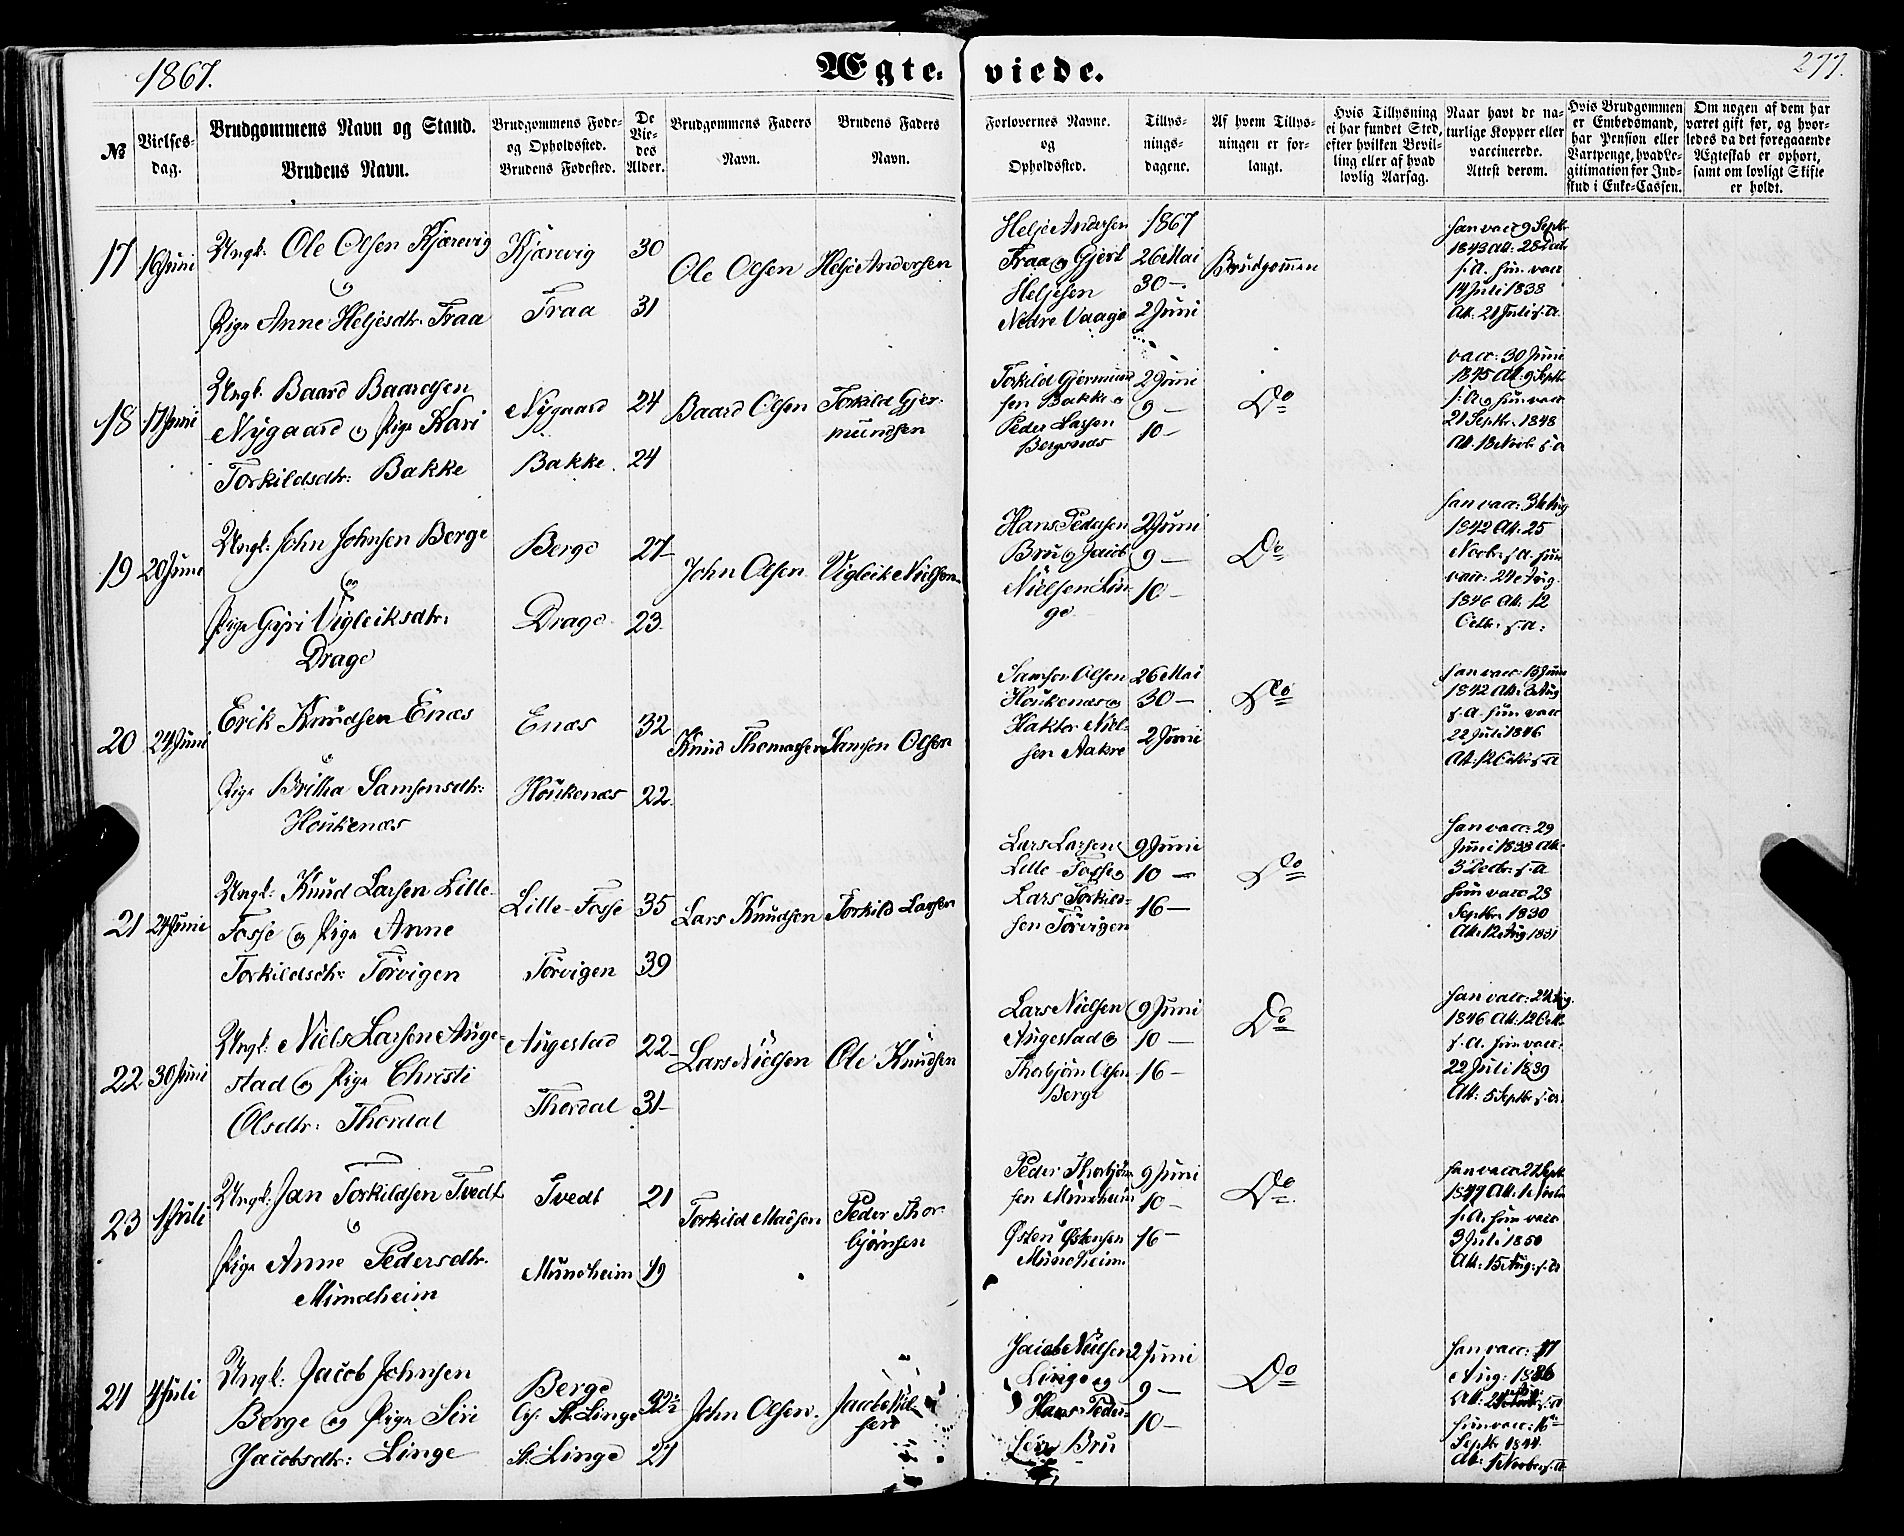 1867.
Ægte- viede.
277.
№
Vielses-
dag.
Brudgommens Navn og Stand.
Brudens Navn.
Brudgommens Føde-
og Opholdssted.
Brudens Fødested.
De
Vie-
des
Alder.
Brudgommens Faders
Navn.
Brudens Faders
Navn.
Forlovernes Navne.
og
Opholdssted.
Tillys-
nings-
dagene.
Af hvem Tillys-
ningen er for-
langt.
Hvis Tillysning
ei har fundet Sted,
efter hvilken Bevil-
ling eller af hvad
lovlig Aarsag.
Naar havt de na-
turlige Kopper eller
vaccinerede.
Attest derom.
Hvis Brudgommen
er Embedsmand,
har Pension eller
Vartpenge, hvad Le-
gitimation for Ind-
skud i Enke-Cassen.
Om nogen af dem har
været gift før, og hvor-
ledes da det foregaaende
Ægteskab er ophørt,
samt om lovligt Skifte
er holdt.
17
16 Juni
Ungk: Ole Olsen Kjærevig
og
Pige Anne Heljesdtr: Traa
Kjærevig
Traa
30
31
Ole Olsen
Helje Andersen
Helje Andersen
Traa og Gjert
Heljesen
Nedre Vaage
1867
26 Mai
30 —
2 Juni
Brudgommen
han vacc 9 Septr
1843 Att: 28 Decb
s. A. hun vacc
14 Juli 1838
Att: 21 Juli s. A
18
17 Juni
Ungk: Baard Baardsen
Nygaard og Pige Kari
Torkildsdtr: Bakke
Nygaard
Bakke
24
24
Baard Olsen
Torkild Gjer-
mundsen
Torkild Gjermund
sen Bakke og
Peder Larsen
Bergsnæs
2 Juni
9 —
10 —
Do
vacc: 30 Juni
1845 Att: 9 Septbr
s: A og hun vacc
21 Septr: 1848
Att: 18 Novb: s. A
19
20 Juni
Ungk: John Johnsen Berge
og
Pige Gyri Vigleiksdtr:
Drage
Berge
Drage
27
23
John Olsen
Vigleik Nielsen
Hans Pedersen
Bru og Jacob
Nielsen Lin-
ge
2 Juni
9 —
10 —
Do
han vacc: 31 Aug
1842 Att: 25
Novb: s. A. hun
vacc: 24 Aug
1846 Att: 12
Octbr: s. A:
20
24 Juni
Erik Knudsen Enæs
og
Pige Britha Samsonsdtr:
Houkenæs
Enæs
Houkenæs
32
22
Knud Thomassen
Samson Olsen
Samson Olsen
Houkenæs og
Haktor Niel-
sen Aakre
26 Mai
30 —
2 Juni
Do
han vacc: 13 Juni
1842 Att: 3 Aug
s. A. hun vacc
22 Juli 1846
Att: 12 Octbr: s. A
21
24 Juni
Ungk: Knud Larsen Lille-
Fosse og Pige Anne
Torkildsdtr: Torvigen
Lille-Fosse
Torvigen
35
39
Lars Knudsen
Torkild Larsen
Lars Larsen
Lille-Fosse og
Lars Torkild-
sen Torvigen
9 Juni
10 —
16 —
Do
han vacc: 29
Juni 1833 Att:
3 Decbr: s. A
hun vacc 23
Septbr 1830
Att: 12 Aug 1831
22
30 Juni
Ungk: Niels Larsen Auge-
stad og Pige Christi
Olsdtr: Thordal
Augestad
Thordal
22
31
Lars Nielsen
Ole Knudsen
Lars Nielsen
Augestad og
Thorbjørn Olsen
Berge
9 Juni
10 —
16 —
Do
han vacc: 24 Aug.
1846 Att: 12 Octb:
s. A. hun vacc:
22 Juli 1839
Att: 5 Septbr s. A.
23
1 Juli
Ungk: Jan Torkildsen Tvedt
og
Pige Anne Pedersdtr.
Mundheim
Tvedt
Mundheim
21
19
Torkild Madsen
Peder Thor
bjørnsen
Peder Thorbjørn
sen Mundheim
Østen Østensen
Mundheim
9 Juni
10 —
16 —
Do
s. A. hun vacc
3 Juli 1850
Att: 15 Aug: s. A
24
4 Juli
Ungk: Jacob Johnsen
Berge og Pige Siri
Jacobsdtr: Linge
Berge
St. Linge
St. Linge
22½
21
John Olsen
Jacob Niel-
sen
Jacob Nielsen
Linge og
Hans Peder-
sen Bru
2 Juni
9 —
10 —
Do
han vacc: 17
hun vacc: 16
Septbr 1844
Att: 1 Novbr s. A